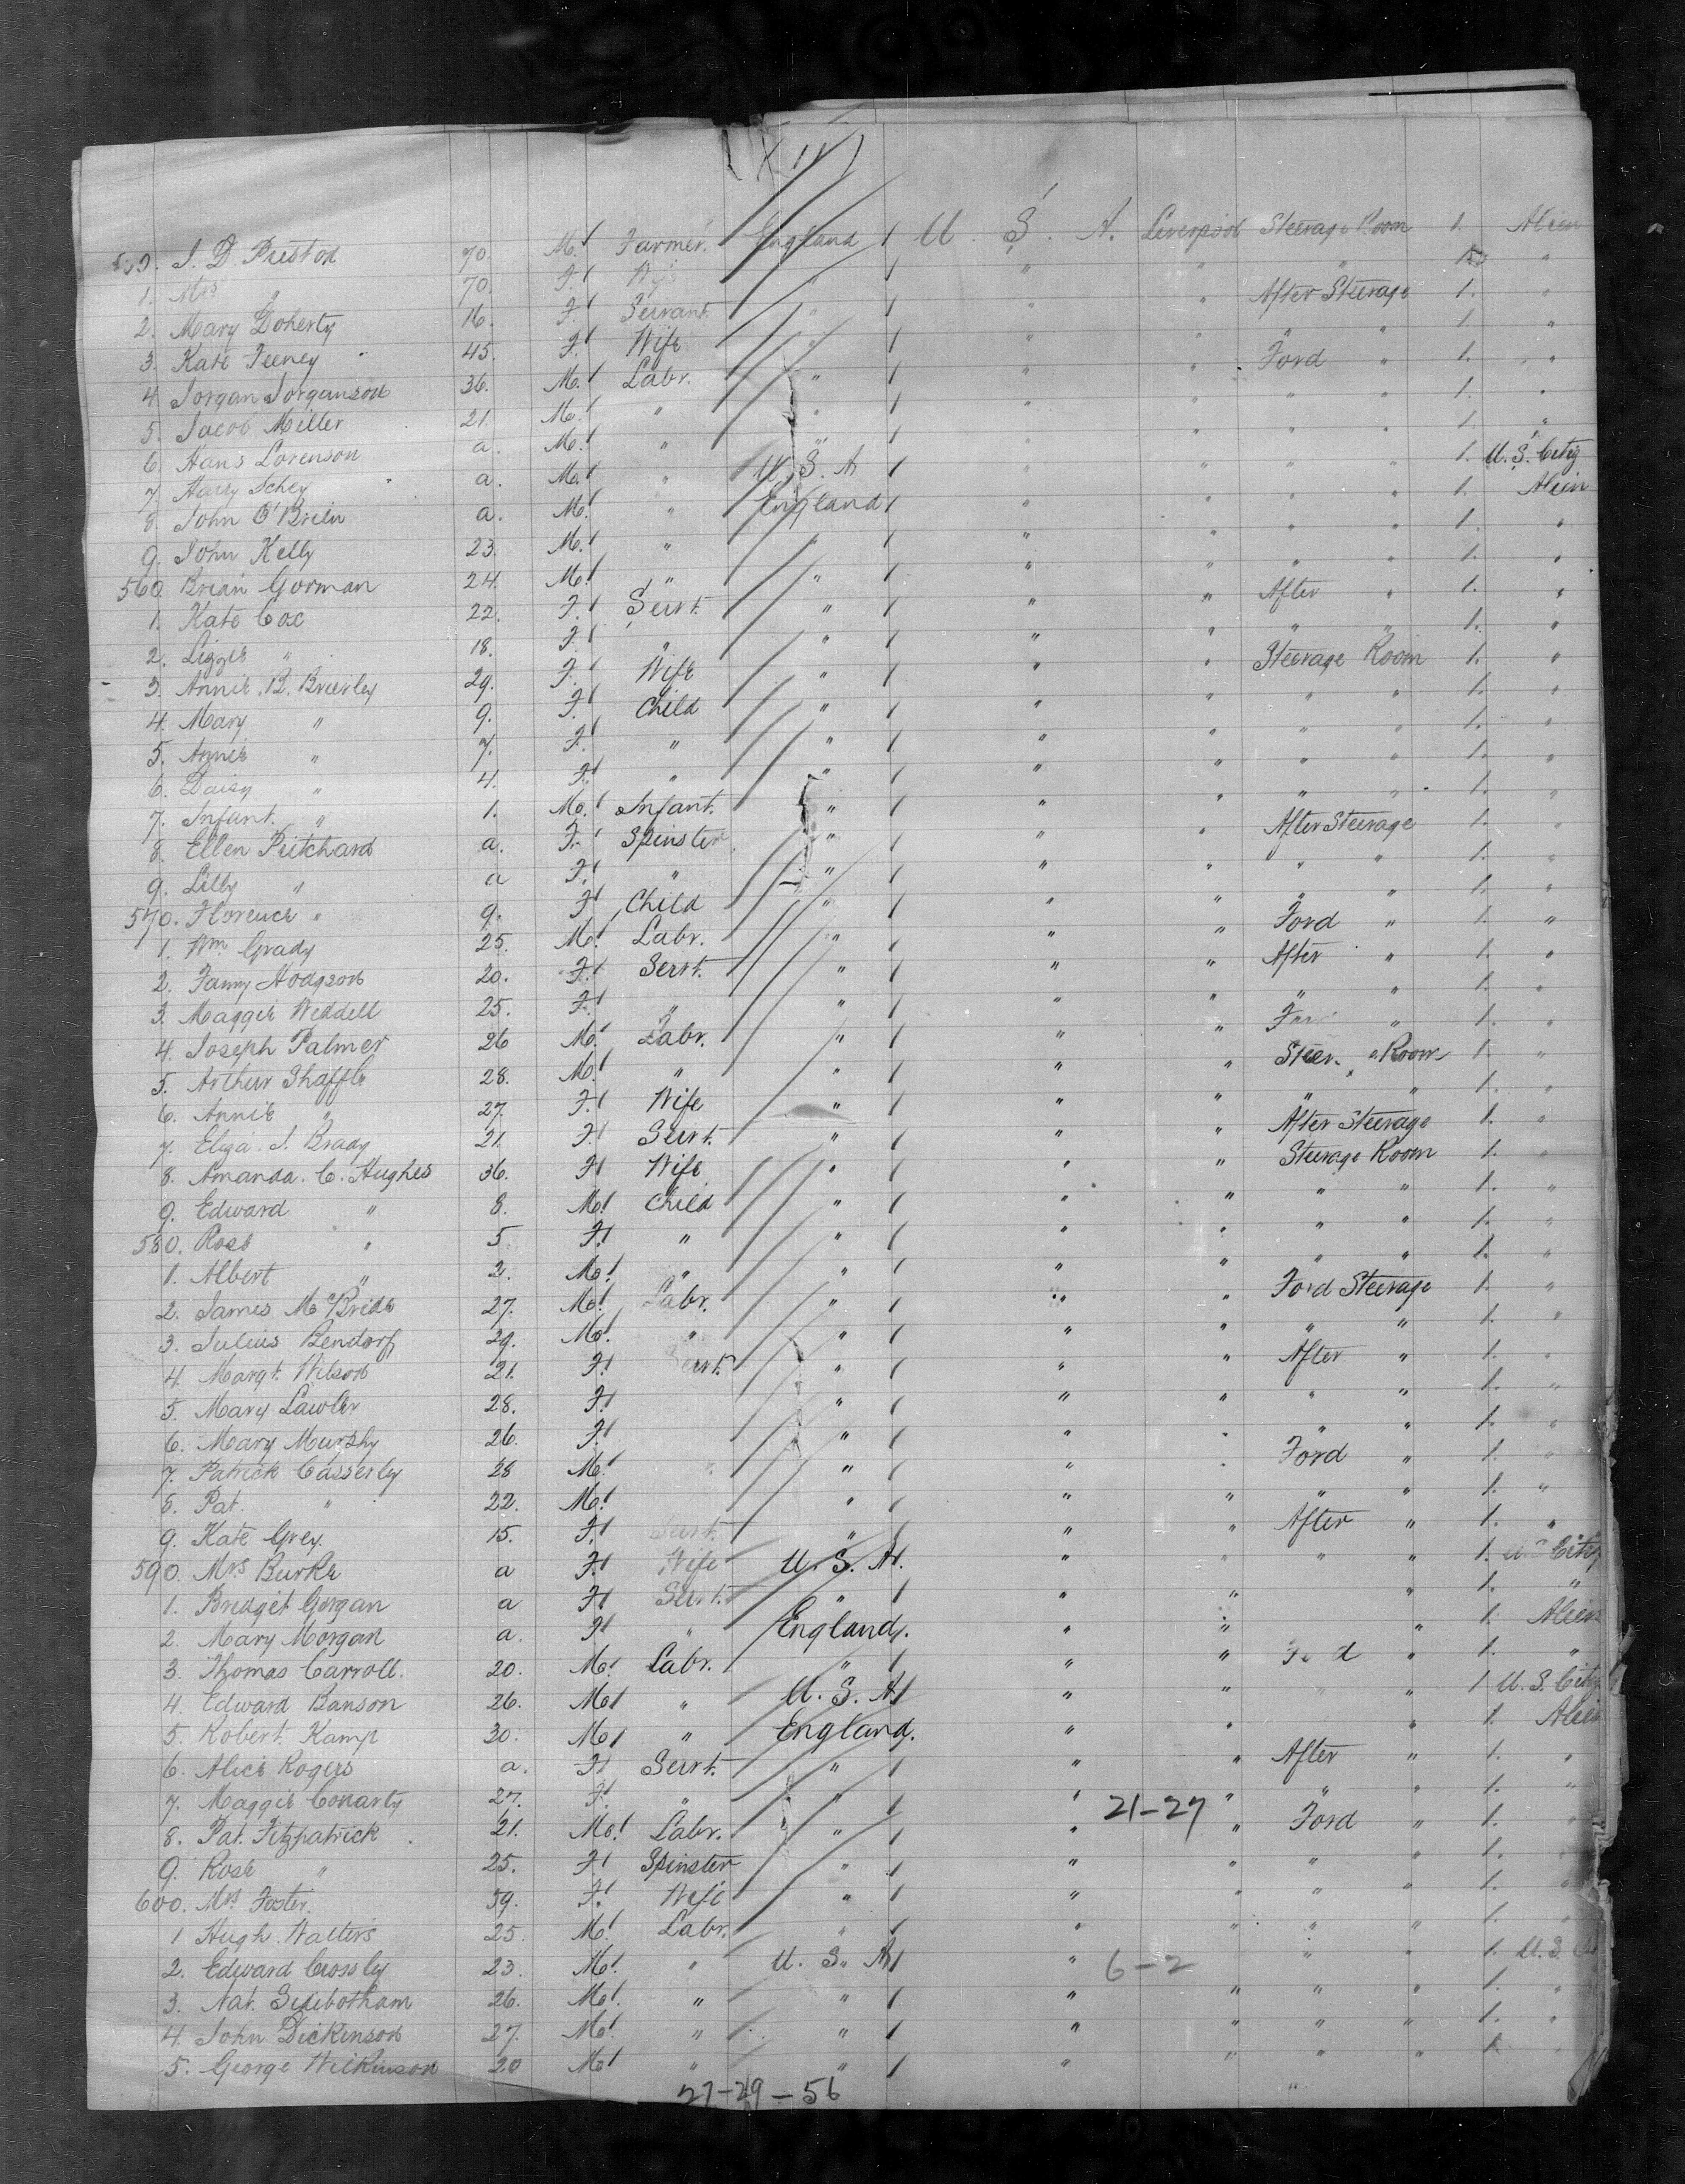 J. D Preston 70. M. Farmer. England U. S. A. Liverpool Steerage Room 1. Alien
1. Mrs " 70. F. Wife " " " " " "
2. Mary Doherty 16. F. Servant " " " After Steerage 1. "
3. Kate Feeney 45. F. Wife " " " " " 1. "
4. Jorgan Jorganson 36. M. Labr. " " " Ford " 1. "
5. Jacob Miller 21. M. " " " " " " 1. "
6. Hans Lorenson a. M. " " " " " " 1. "
7. Harry Schey a. M. " U. S. A " " " " 1. U. S. Citiz
8. John O'Brien a. M. " England " " " " 1. Alien
9. John Kelly 23. M. " " " " " " 1. "
560. Brian Gorman 24. M. " " " " " " 1. "
1. Kate Cox 22. F. Servt. " " " After " 1. "
2. Lizzie " 18. F. " " " " " " 1. "
3. Annie. B. Brierley 29. F. Wife " " " Steerage Room 1. "
4. Mary " 9. F. Child " " " " " 1. "
5. Annie " 7. F. " " " " " " 1. "
6. Daisy " 4. F. " " " " " " 1. "
7. Infant. " 1. M. Infant. " " " " " 1. "
8. Ellen Pritchard a. F. Spinster " " " After Steerage 1. "
9. Lilly " a F. " " " " " " 1. "
570. Florence " 9. F. Child " " " " " 1. "
1. Wm. Grady 25. M. Labr. " " " Ford " 1. "
2. Fanny Hodgson 20. F. Servt. " " " After " 1. "
3. Maggie Weddell 25. F. " " " " " " 1. "
4. Joseph Palmer 26 M. Labr. " " " " 1. "
5. Arthur Shaffle 28. M. " " " " Room 1. "
6. Annie " 27. F. Wife " " " " " 1. "
7. Eliza. J. Brady 21. F. Servt. " " " After Steerage 1. "
8. Amanda. C. Hughes 36. F. Wife " " " Steerage Room 1. "
9. Edward " 8. M. Child " " " " " 1. "
580. Rose " 5 F. " " " " " " 1. "
1. Albert " 2. M. " " " " " " 1. "
2. James McBride 27. M. Labr. " " " Ford Steerage 1. "
3. Julius Bendorf 29. M. " " " " " " 1. "
4. Margt. Wilson 21. F. Servt. " " " After " 1. "
5. Mary Lawler 28. F. " " " " " 1. "
6. Mary Murphy 26. F. " " " " " 1. "
7. Patrick Casserley 28 M. " " " Ford " 1. "
8. Pat. " 22. M. " " " " " 1. "
9. Kate Grey. 15. F. Servt. " " " After " 1. "
590. Mrs Burke a F. Wife U. S. A. " " " " 1. U S Citiz
1. Bridget Gorgan a F. Servt. " " " " 1. "
2. Mary Morgan a. F. " England. " " " 1. Alien
3. Thomas Carroll. 20. M. Labr. " " " " 1. "
4. Edward Banson 26. M. " U. S. A. " " " " 1 U. S. Citiz
5. Robert. Kamp 30. M. " England. " " " 1. Alien
6. Alice Rogers a. F. Servt. " " " After " 1. "
7. Maggie Conarty 27. F. " " " 21-27 " " " 1. "
8. Pat. Fitzpatrick 21. M. Labr. " " " Ford " 1. "
9. Rose " 25. F. Spinster " " " " " 1. "
600. Mrs. Foster. 59. F. Wife " " " " " 1. "
1 Hugh Walters 25. M. Labr. " " " " " 1. "
2. Edward Crossley 23. M. " U. S. A " 6-2 " " 1. U. S.
3. Nat. Sidebotham 26. M. " " " " " " 1. "
4 John Dickinson 27. M. " " " " " " 1. "
5. George Wilkinson 20 M. " " " " " " 1.
27-29-56